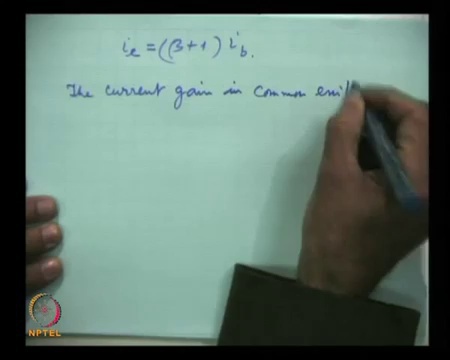 i_e = (β+1) i_b.
The current gain in common emit
NPTEL